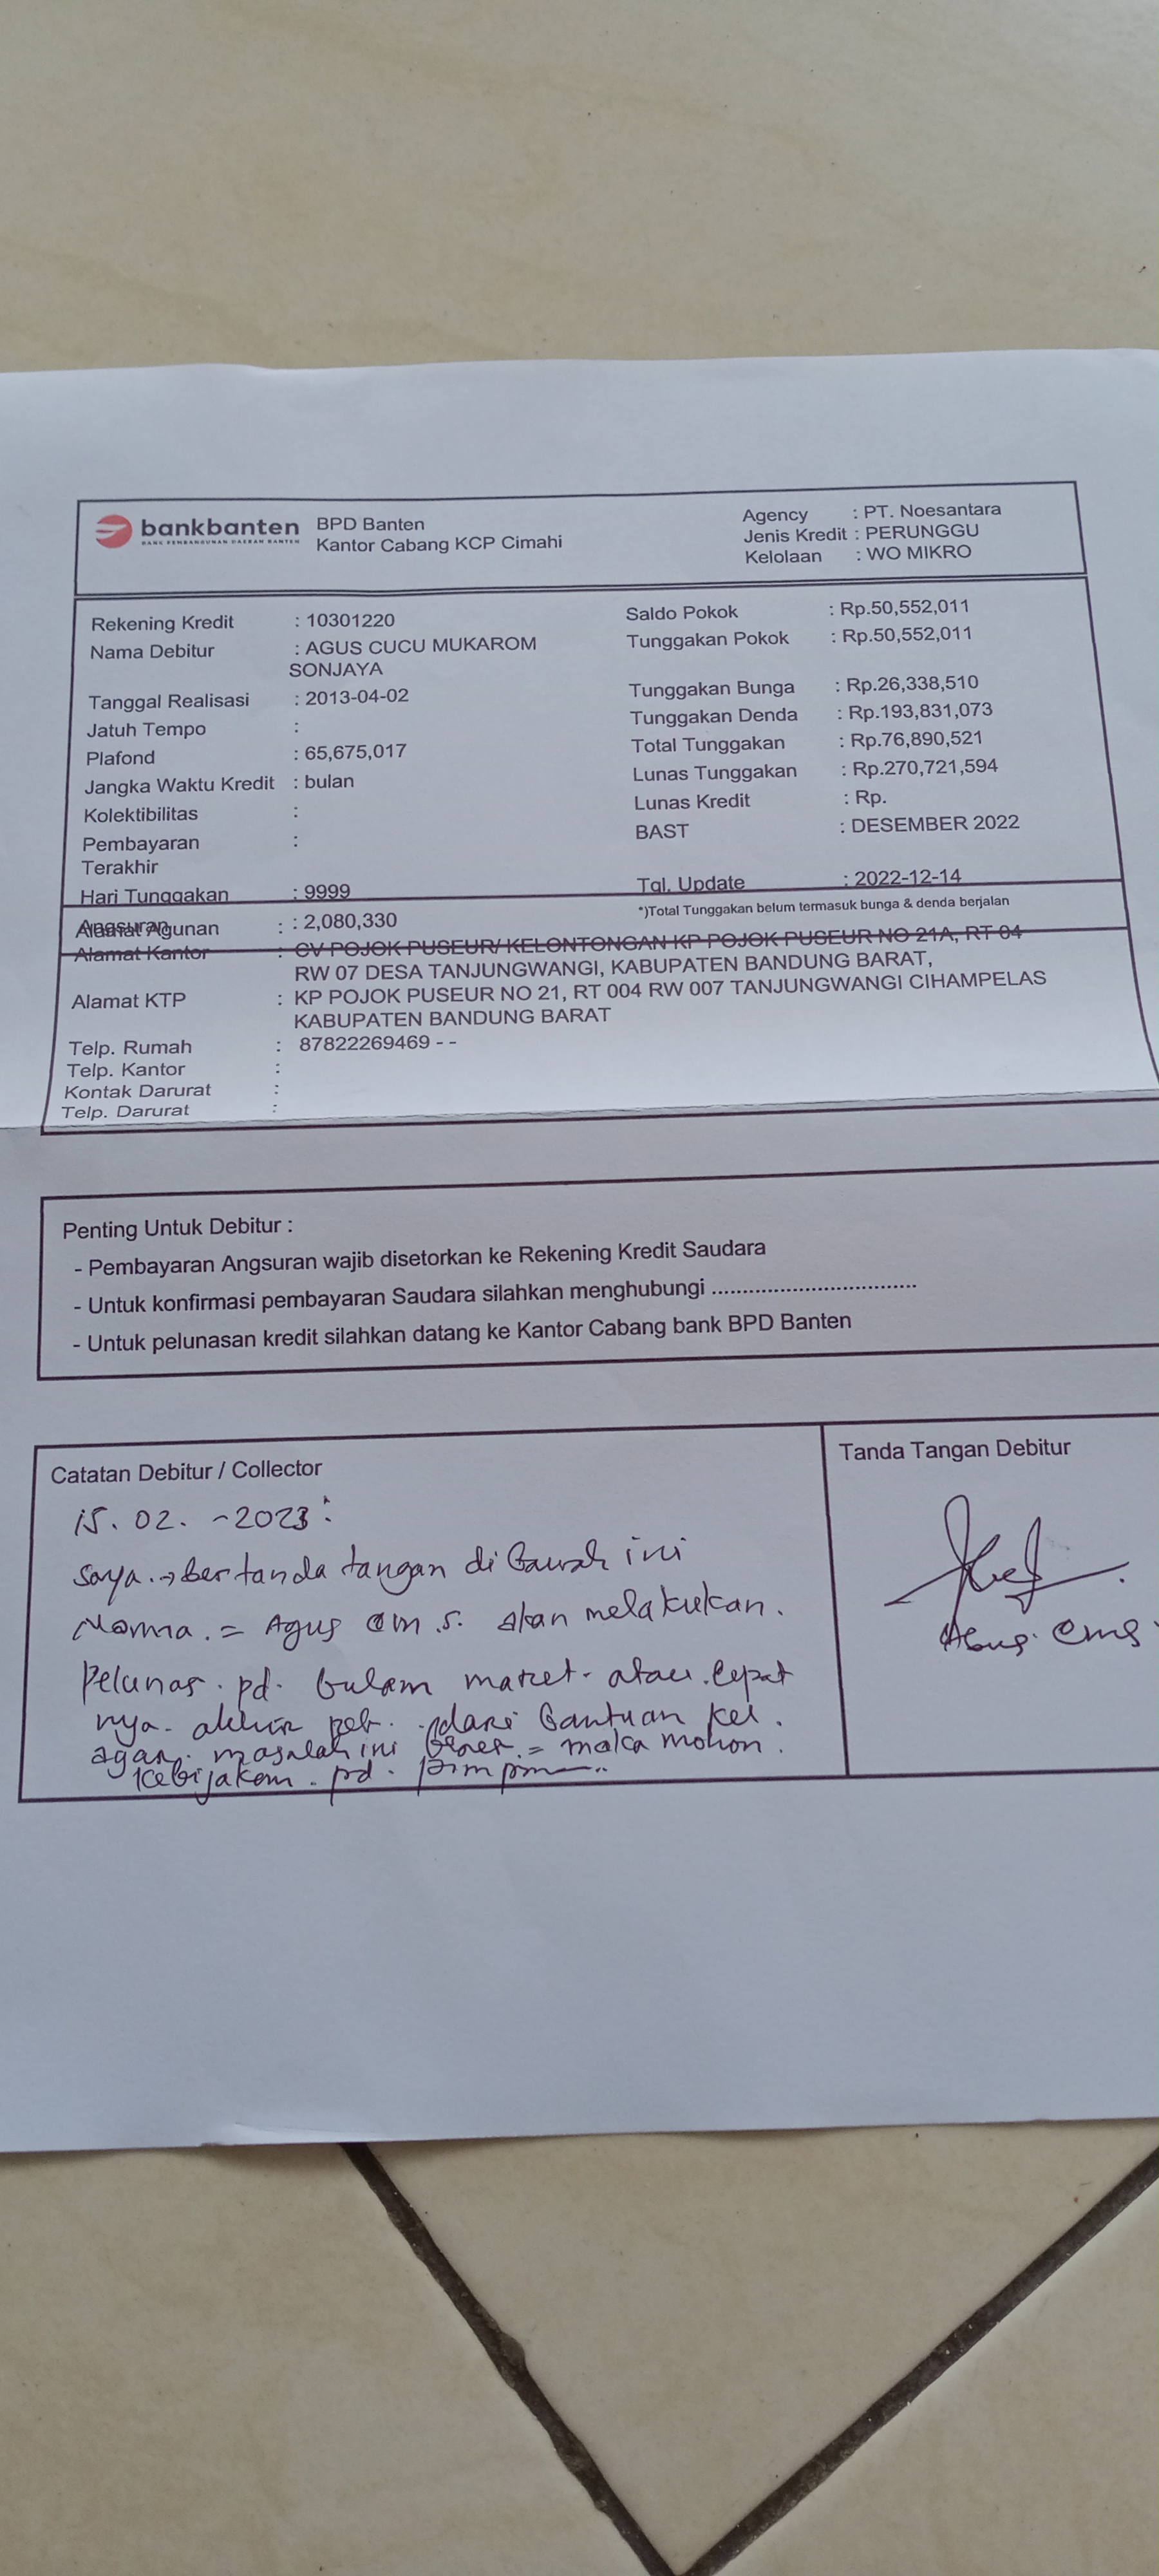 bankbanten
BANK PEMBANGUNAN DAERAH BANTEN
BPD Banten
Kantor Cabang KCP Cimahi
Agency : PT. Noesantara
Jenis Kredit : PERUNGGU
Kelolaan : WO MIKRO
Rekening Kredit : 10301220
Nama Debitur : AGUS CUCU MUKAROM
SONJAYA
Tanggal Realisasi : 2013-04-02
Jatuh Tempo :
Plafond : 65,675,017
Jangka Waktu Kredit : bulan
Kolektibilitas :
Pembayaran :
Terakhir
Hari Tunggakan : 9999
Angsuran : 2,080,330
Saldo Pokok : Rp.50,552,011
Tunggakan Pokok : Rp.50,552,011
Tunggakan Bunga : Rp.26,338,510
Tunggakan Denda : Rp.193,831,073
Total Tunggakan : Rp.76,890,521
Lunas Tunggakan : Rp.270,721,594
Lunas Kredit : Rp.
BAST : DESEMBER 2022
Tgl. Update : 2022-12-14
*)Total Tunggakan belum termasuk bunga & denda berjalan
Alamat Agunan :
Alamat Kantor : CV POJOK PUSEUR/ KELONTONGAN KP POJOK PUSEUR NO 21A, RT 04
RW 07 DESA TANJUNGWANGI, KABUPATEN BANDUNG BARAT,
Alamat KTP : KP POJOK PUSEUR NO 21, RT 004 RW 007 TANJUNGWANGI CIHAMPELAS
KABUPATEN BANDUNG BARAT
Telp. Rumah : 87822269469 - -
Telp. Kantor :
Kontak Darurat :
Telp. Darurat :
Penting Untuk Debitur :
- Pembayaran Angsuran wajib disetorkan ke Rekening Kredit Saudara
- Untuk konfirmasi pembayaran Saudara silahkan menghubungi ................................
- Untuk pelunasan kredit silahkan datang ke Kantor Cabang bank BPD Banten
Catatan Debitur / Collector
15. 02. -2023:
Saya. → bertanda tangan di bawah ini
Nama. = Agus cm.s. akan melakukan.
Pelunas. pd. bulam maret. atau. cepat
nya. akhir peb. .dari bantuan kel.
agar. masalah ini beres. = maka mohon.
kebijakan. pd. pimpinan..
Tanda Tangan Debitur
Agus. cms